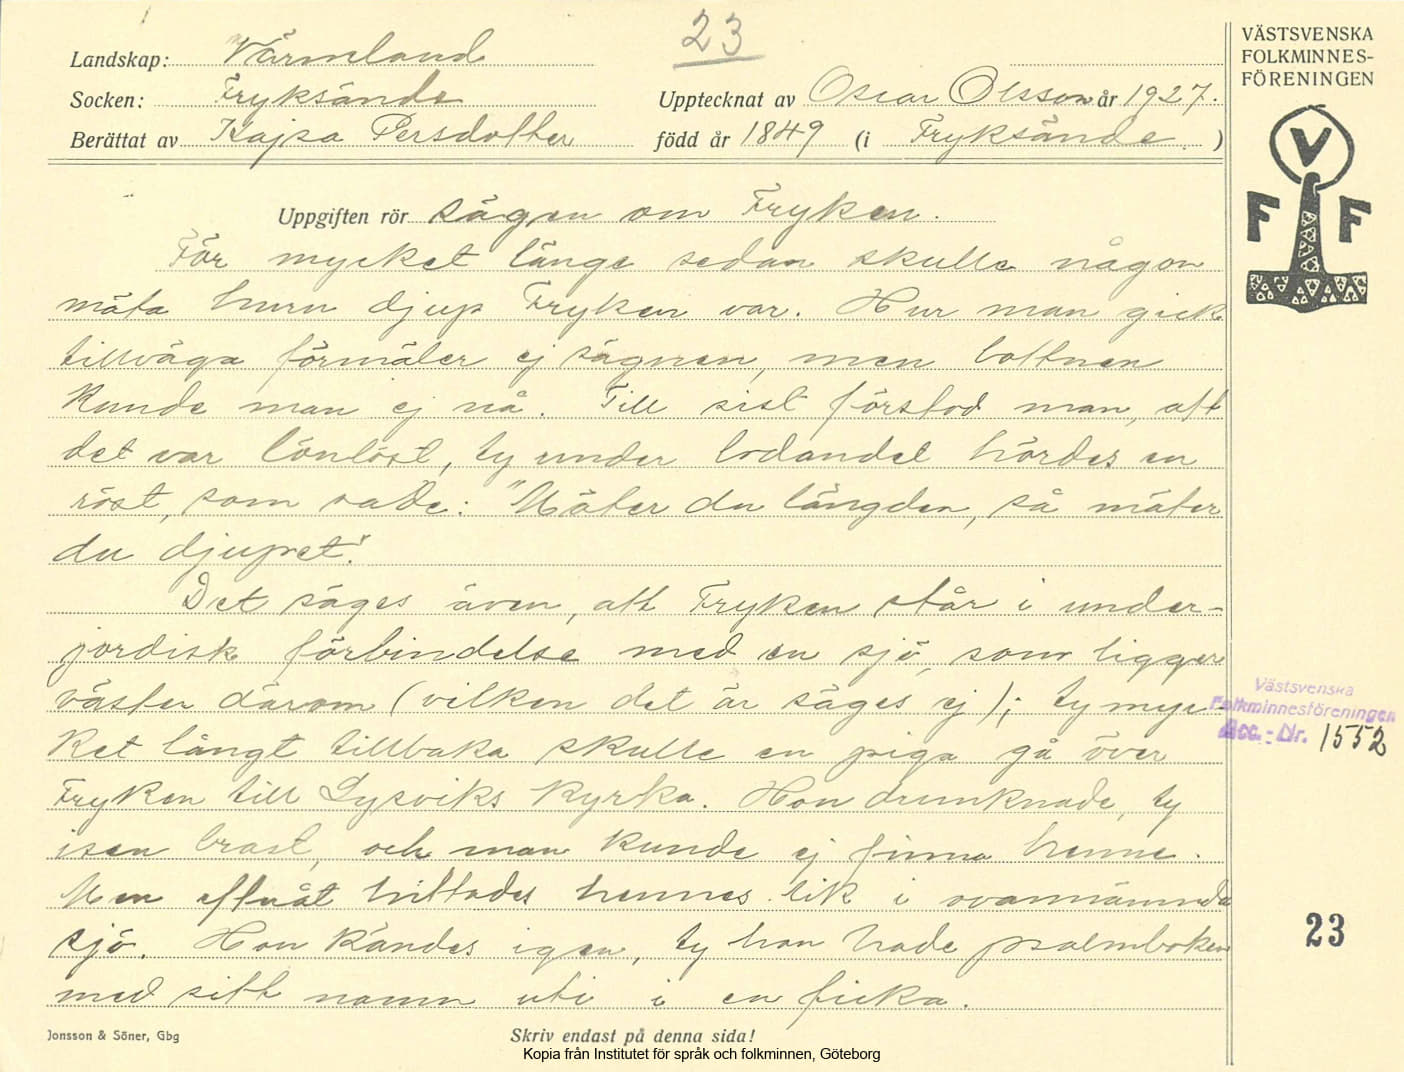 23
Landskap: Värmeland
Socken: Fryksände
Upptecknat av Oscar Olsson år 1927.
Berättat av Kajsa Persdotter född år 1849 (i Fryksände.)
VÄSTSVENSKA
FOLKMINNES-
FÖRENINGEN
V
F F
Uppgiften rör sägen om Fryken.
För mycket länge sedan skulle någon
mäta huru djup Fryken var. Hur man gick
tillväga förmäler ej sägnen, men bottnen
kunde man ej nå. Till sist förstod man, att
det var lönlöst, ty under lodandet hördes en
röst, som sade: "Mäter du längden, så mäter
du djupet".
Det säges även, att Fryken står i under-
jordisk förbindelse med en sjö, som ligger
väster därom (vilken det är säges ej); ty myc-
ket långt tillbaka skulle en piga gå över
Fryken till Lysviks kyrka. Hon drunknade, ty
isen brast, och man kunde ej finna henne.
Men efteråt hittades hennes lik i ovannämnda
sjö. Hon kändes igen, ty hon hade psalmboken
med sitt namn uti i en ficka.
Västsvenska
Folkminnesföreningen
Acc.-Nr. 1552
23
Jonsson & Söner, Gbg
Skriv endast på denna sida!
Kopia från Institutet för språk och folkminnen, Göteborg